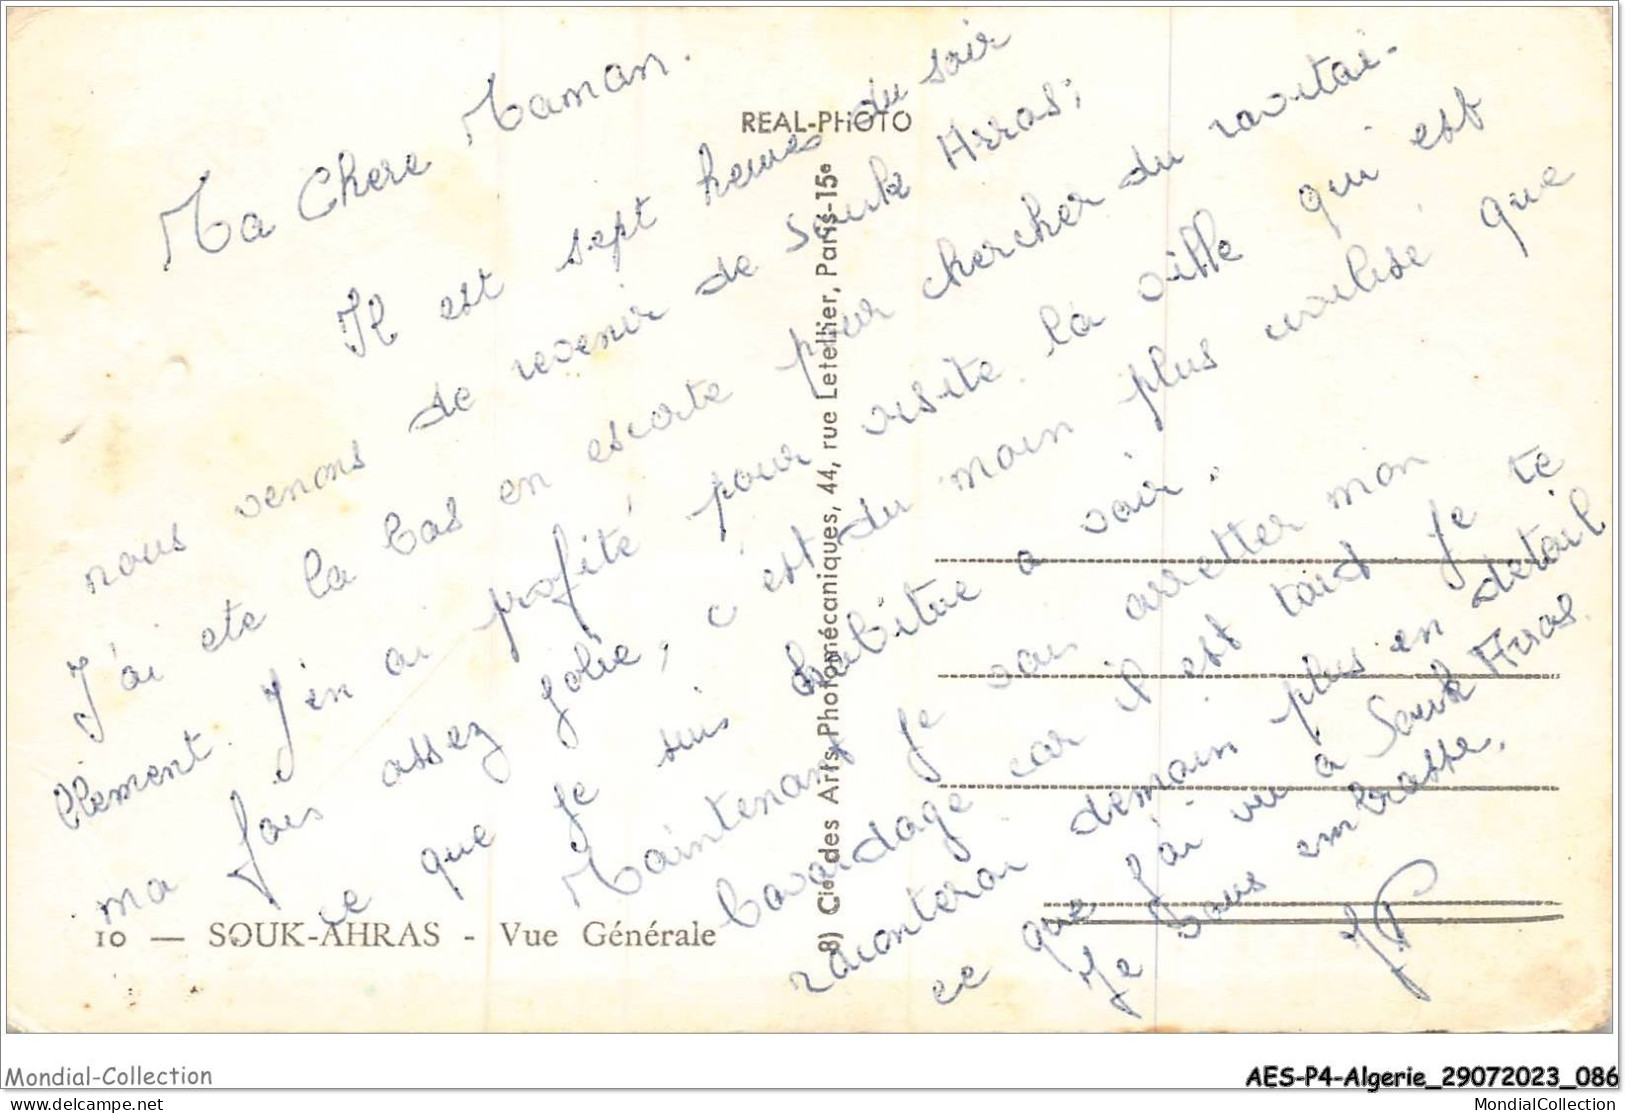 Ma Chere Maman.
Il est sept heures du soir
nous venons de revenir de Souk Arras;
J'ai ete la bas en escorte pour chercher du ravitai-
llement. J'en ai profité pour visite la ville qui est
ma fois assez jolie, c'est du moin plus civilisé que
ce que je suis habitue a voir.
Maintenant je vais arretter mon
bavardage car il est tard je te
raconterai demain plus en detail
ce que j'ai vu a Souk Arras.
Je vous embrasse.
JP
REAL-PHOTO
8) Cie des Arts Photomécaniques, 44, rue Letellier, Paris-15e
10 — SOUK-AHRAS - Vue Générale
Mondial-Collection
AES-P4-Algerie_29072023_086
www.delcampe.net
MondialCollection